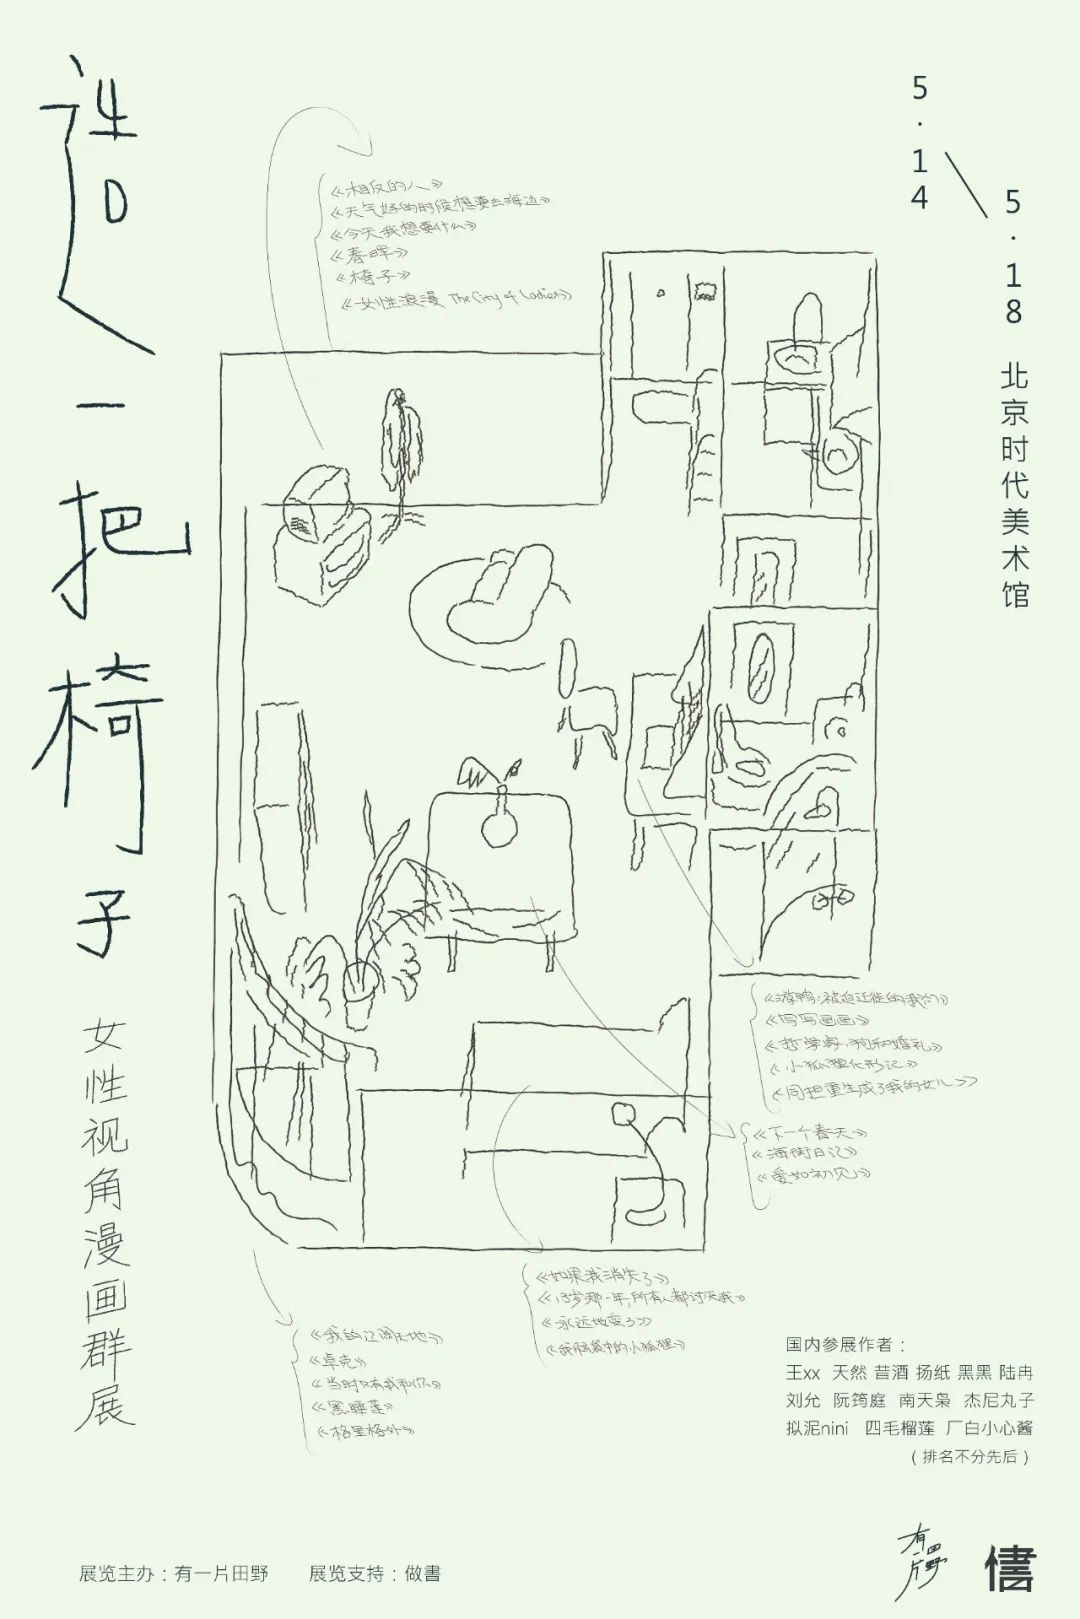 造一把椅子
女性视角漫画群展
5.14
5.18 北京时代美术馆
《相反的人》
《天气好的时候想要去海边》
《今天我想要什么》
《春晖》
《椅子》
《女性浪漫 The City of Ladies》
《游鸭:被迫迁徙的我们》
《写写画画》
《哲学家,狗和婚礼》
《小狐狸化形记》
《同担重生成了我的女儿》
《下一个春天》
《海街日记》
《爱如初见》
《如果我消失了》
《13岁那一年,所有人都讨厌我》
《永远地变了》
《我脑袋中的小狐狸》
《我的辽阔天地》
《卓克》
《当时只有我和你》
《黑睡莲》
《格里格外》
国内参展作者：
王xx 天然 昔酒 扬纸 黑黑 陆冉
刘允 阮筠庭 南天枭 杰尼丸子
拟泥nini 四毛榴莲 厂白小心酱
（排名不分先后）
展览主办：有一片田野 展览支持：做書
有一片田野